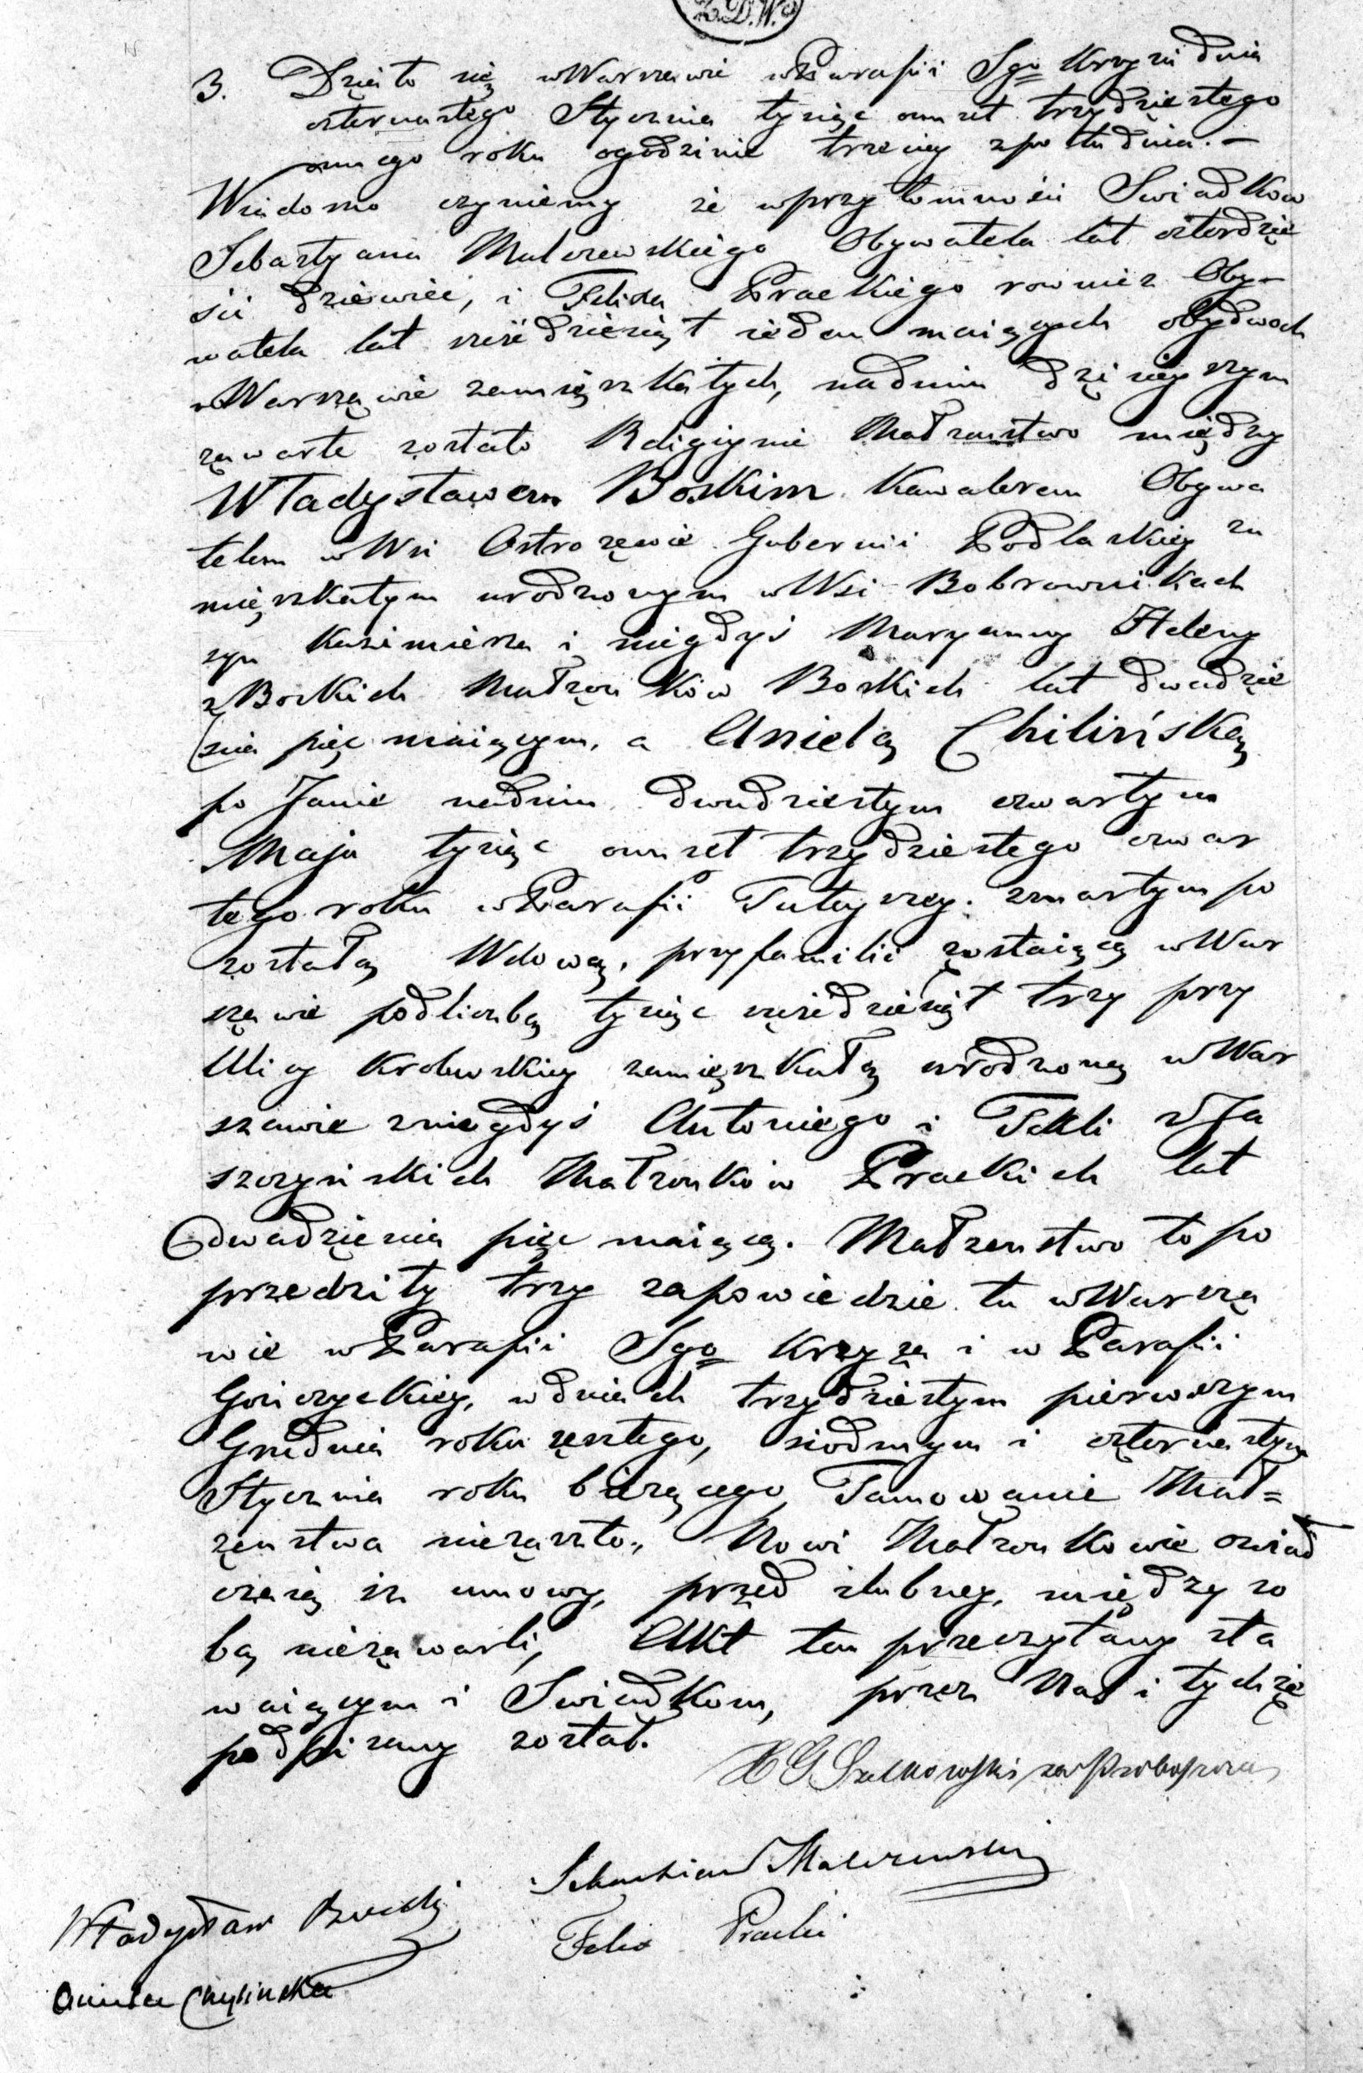 Z.D.W.
3. Działo się w Warszawie w Parafii Sgo Krzyża dnia
czternastego Stycznia tysiąc ośmset trzydziestego
osmego roku o godzinie trzeciey z południa. —
Wiadomo czyniemy że w przytomności Swiadków
Sebastyana Malczewskiego Obywatela lat czterdzie
ści dziewięć, i Felixa Prackiego rownież Oby-
watela lat sześćdziesiąt ieden maiących obydwoch
w Warszawie zamięszkałych, na dniu dzisieyszym
zawarte zostało Religiyne Małzenstwo między
Władysławem Boskim Kawalerem Obywa
telem w Wsi Ostrożęnie Gubernii Podlaskiey za
mięszkałym urodzonym w Wsi Bobrownikach
syn Kazimierza i niegdyś Maryanny Heleny
z Boskich Małżonków Boskich lat dwadzie
scia pięć maiącym, a Anielą Chilińską
po Janie na dniu dwudziestym czwartym
Maja tysiąc ośmset trzydziestego czwar
tego roku w Parafii Tuteyszey zmarłym po
zostałą Wdową, przy familii zostaiącą w War
szawie pod liczbą tysiąc sześćdziesiąt trzy przy
Ulicy Krolewskiey zamięszkałą urodzoną w War
szawie z niegdyś Antoniego i Tekli z Ja
szczyńskich Małżonków Prackich lat
dwadziescia pięć maiącą. Małzenstwo to po
przedziły trzy zapowiedzie tu w Warsza
wie w Parafii Sgo Krzyża i w Parafii
Gończyckiey, w dniach trzydziestym pierwszym
Grudnia roku zeszłego, siodmym i czternastym
Stycznia roku bieżącego, Tamowanie Mał=
żenstwa niezaszło, Nowi Małzonkowie oswiad
czaią iż umowy, przed slubney, między so
bą niezawarli, Akt ten przeczytany sta
waiącym i Swiadkom, przez Nas i tychże
podpisany został.
X G Szelkowski za Proboszcza
Sebastian Malczewski
Władysław Boski
Felix Pracki
Aniela Chylinska